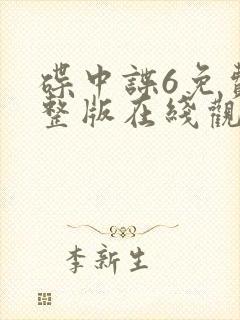 碟中諜6免費
整版在綫觀
李新生